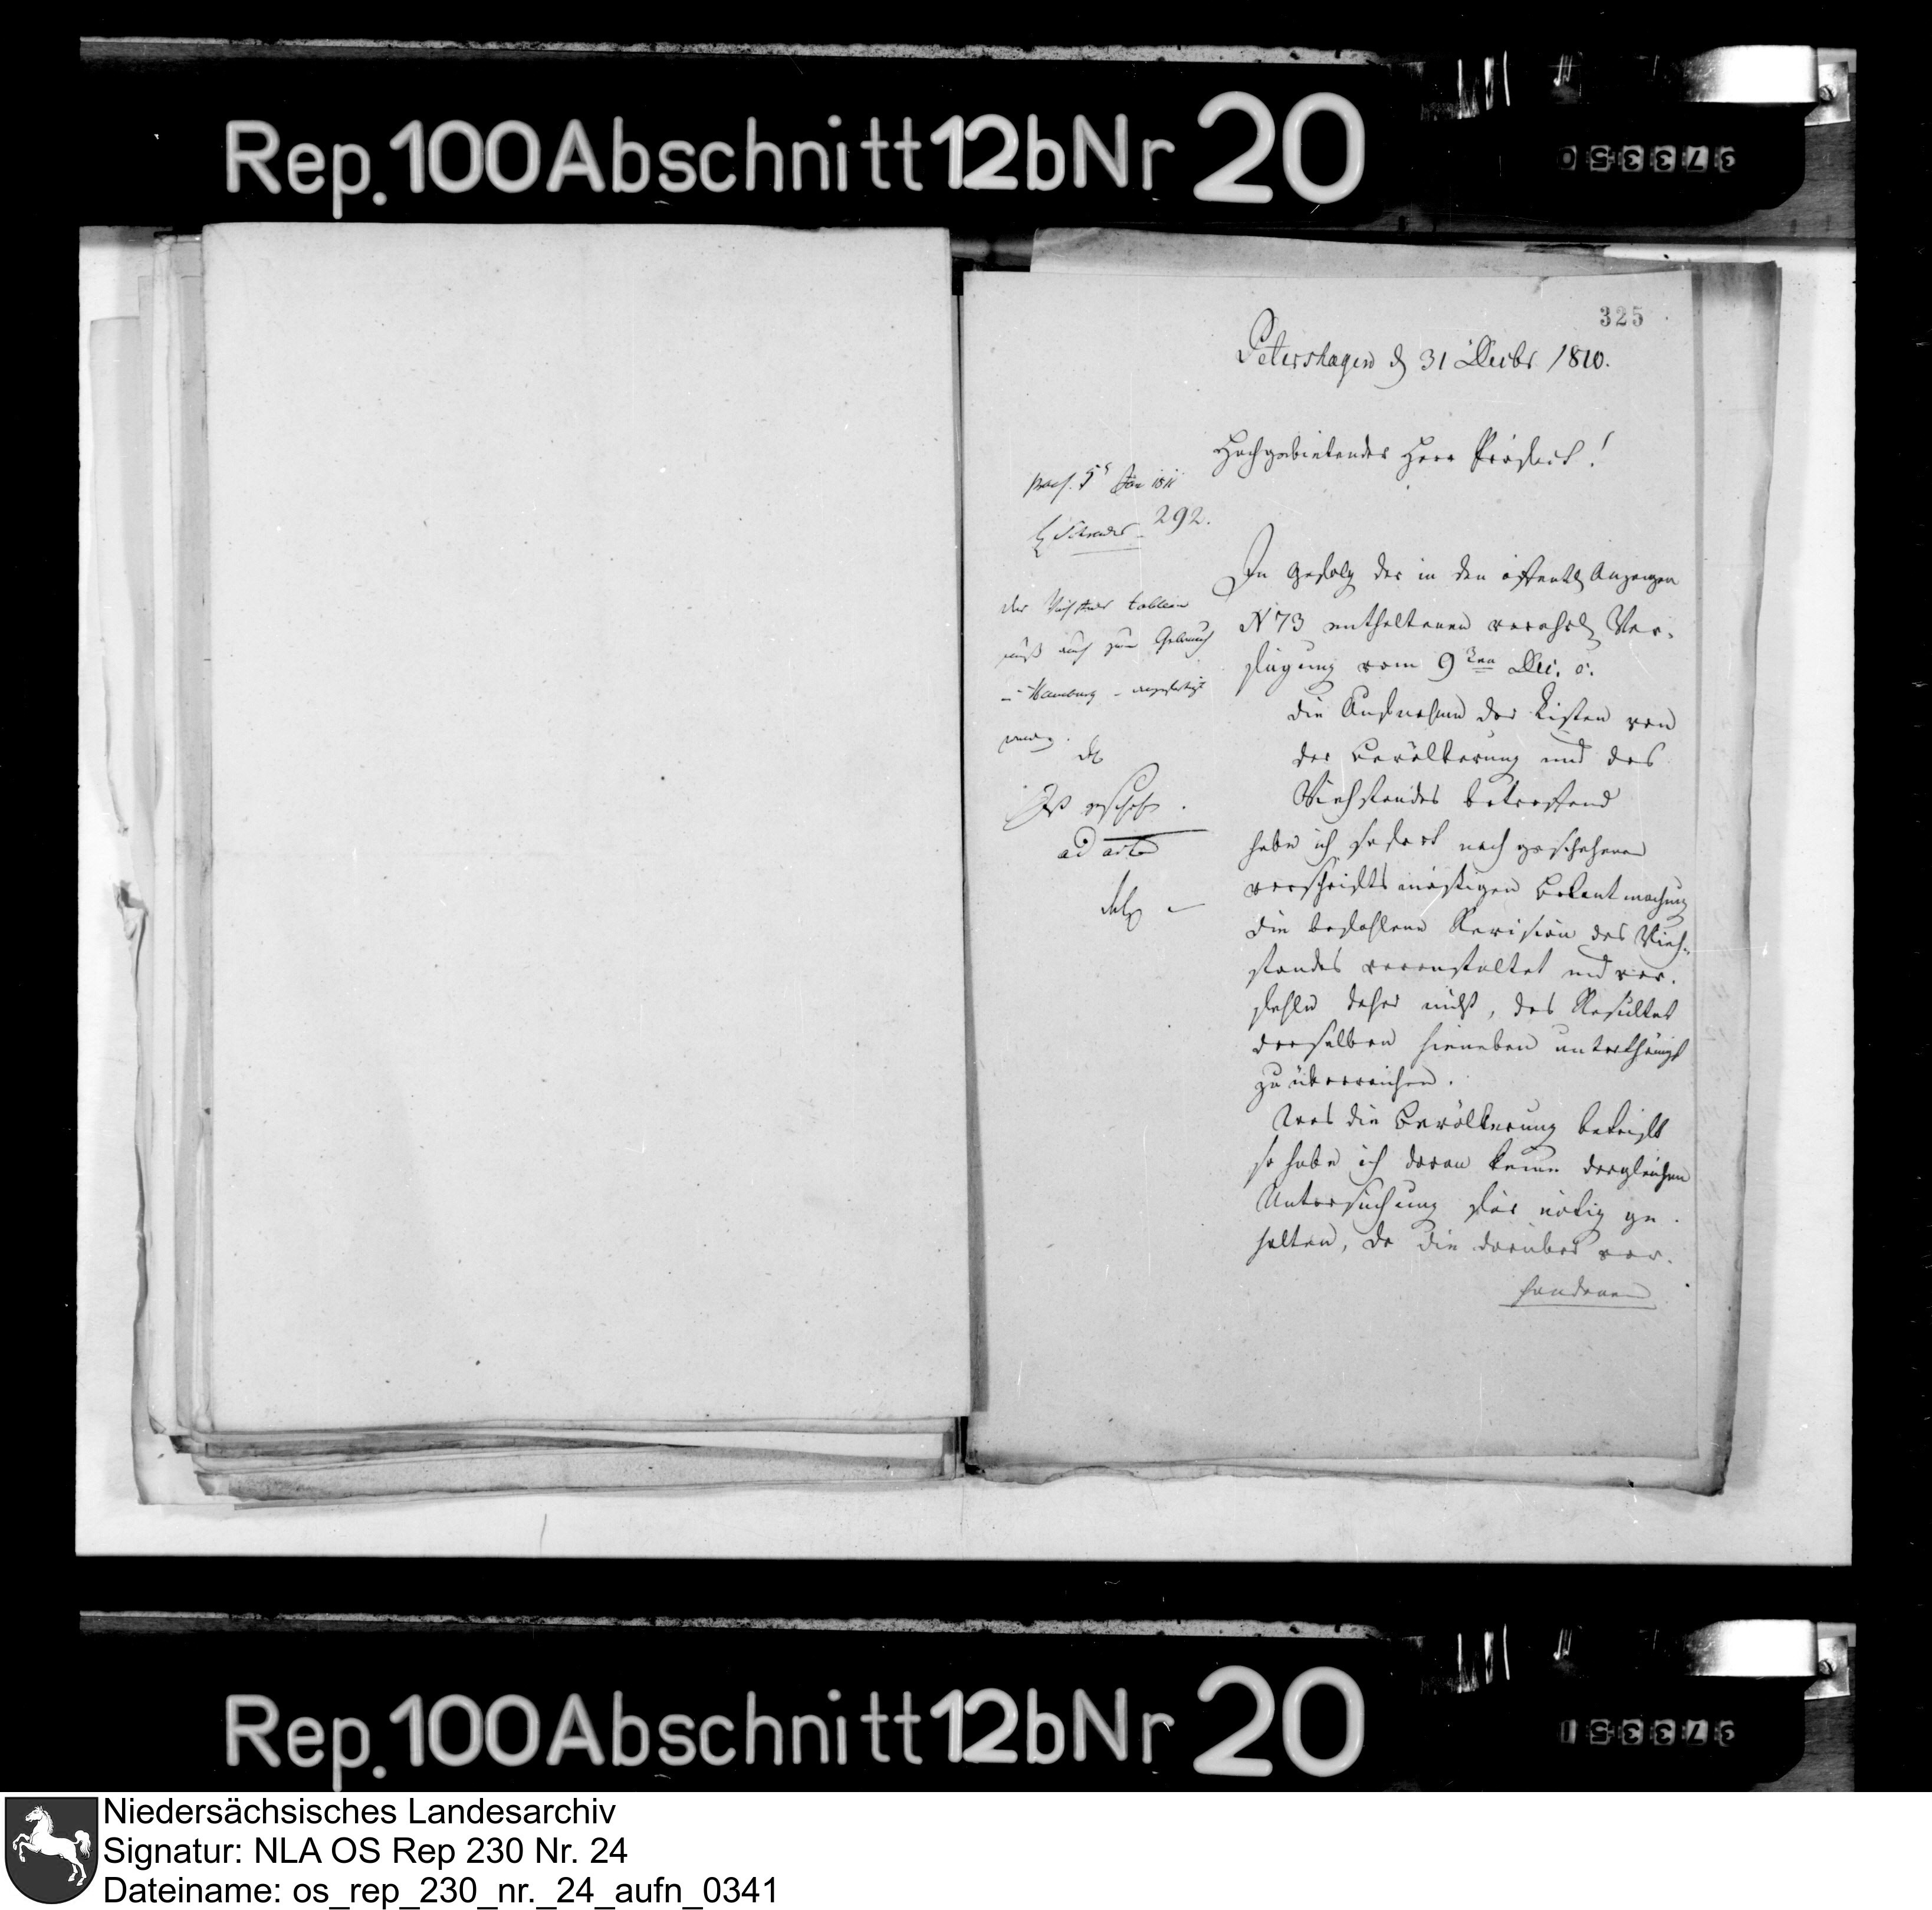 Rep. 100 Abschnitt 12b Nr 20
373350
325
Petershagen d 31 Decbr 1810.
Hochgebietender Herr Präfect!
praes. 5t Jan 1811
292.
In Gefolg der in den öffentl Anzeigen
N 73 enthaltenen verehrl Ver-
fügung vom 9ten Dec. c.
die Aufnahme der Listen von
der Bevölkerung und des
Viehstandes betreffend
habe ich sofort nach geschehener
vorschriftsmäßigen Bekantmachung
die befohlene Revision des Vieh-
standes veranstaltet und ver-
fehle daher nicht, das Resultat
derselben hieneben unterthänigst
zu überreichen.
Was die Bevölkerung betrifft
so habe ich davon keine dergleichen
Untersuchung für nötig ge-
halten, da die darüber vor-
handenen
der Viehstands tableau
muß auch zum Gebrauch
Hamburg angefertigt
werden.
Ist geschehen.
ad acta
Rep. 100 Abschnitt 12b Nr 20
373351
Niedersächsisches Landesarchiv
Signatur: NLA OS Rep 230 Nr. 24
Dateiname: os_rep_230_nr._24_aufn_0341